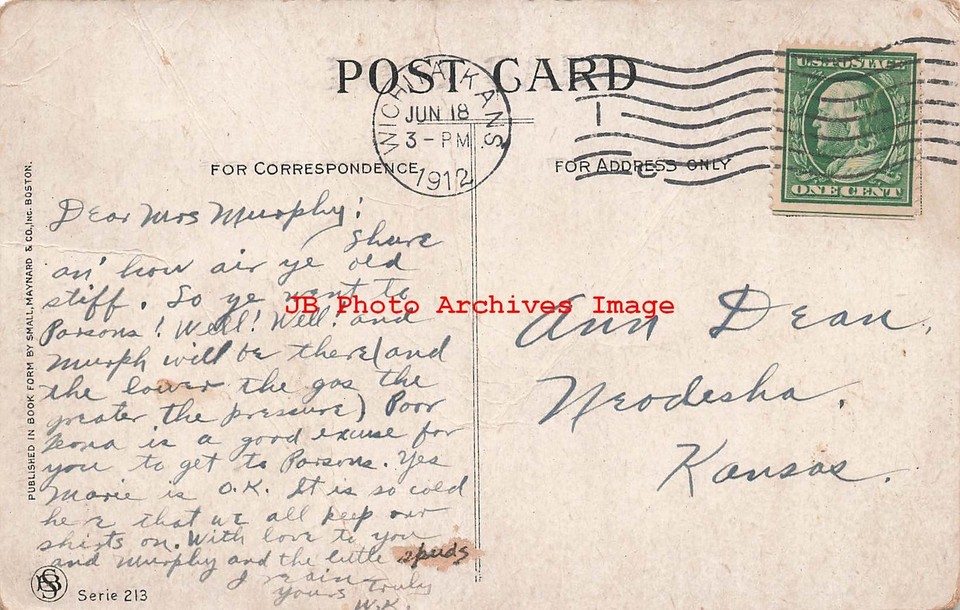 POST CARD
WICHITA, KANS.
JUN 18
3 - PM
1912
1
U.S. POSTAGE
ONE CENT
FOR CORRESPONDENCE
FOR ADDRESS ONLY
Dear Mrs Murphy!
Shure
an' how air ye old
stiff. So ye went to
Parsons! Well! Well! and
Murph will be there (and
the lower the gas the
greater the pressure) Poor
is a good excuse for
you to get to Parsons. Yes
Marie is O.K. It is so cold
here that we all keep our
shirts on. With love to you
and Murphy and the little spuds
I remain
yours truly
W.K.
Ann Dean,
Neodesha,
Kansas.
PUBLISHED IN BOOK FORM BY SMALL, MAYNARD & CO., INC. BOSTON.
Serie 213
JB Photo Archives Image